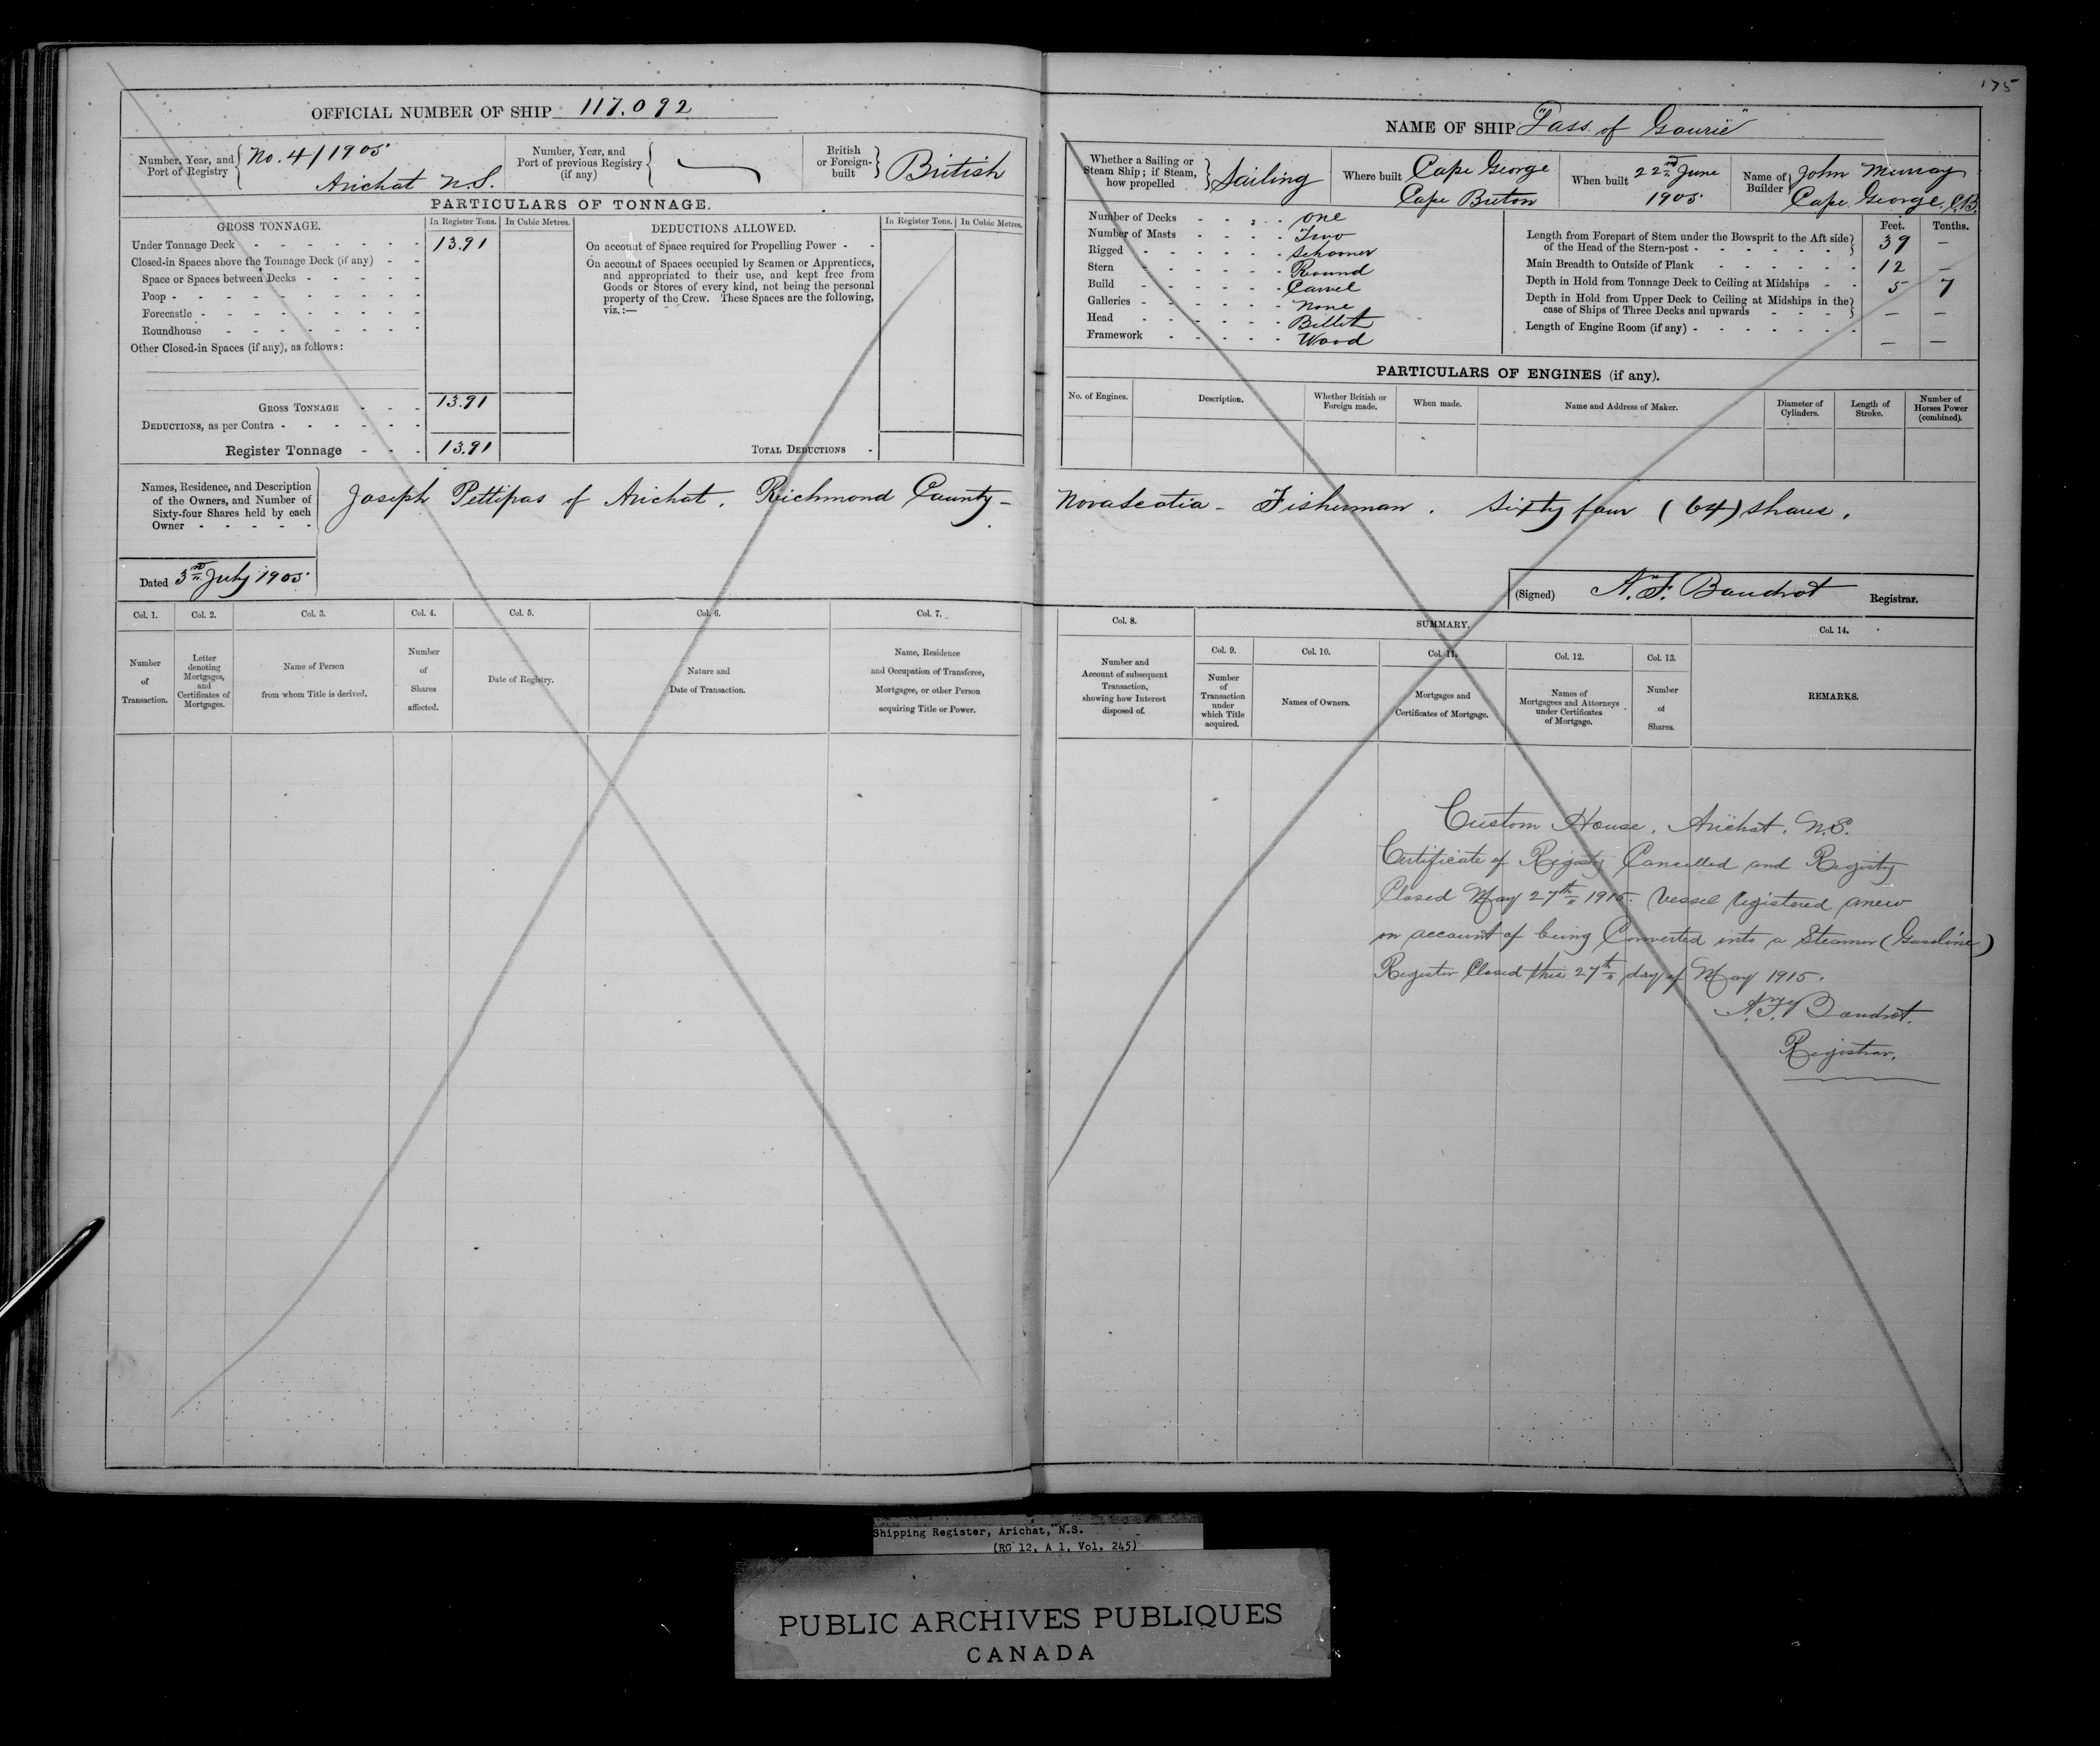 OFFICIAL NUMBER OF SHIP 117.092
Number, Year, and Port of Registry { No. 4/1905 Arichat N.S.
Number, Year, and Port of previous Registry (if any) {
British or Foreign-built } British
PARTICULARS OF TONNAGE.
GROSS TONNAGE. In Register Tons. In Cubic Metres.
Under Tonnage Deck - - - - - - - 13.91
Closed-in Spaces above the Tonnage Deck (if any) - -
Space or Spaces between Decks - - - - -
Poop - - - - - - - - - -
Forecastle - - - - - - - - -
Roundhouse - - - - - - - -
Other Closed-in Spaces (if any), as follows:
GROSS TONNAGE - - - 13.91
DEDUCTIONS, as per Contra - - - - - -
Register Tonnage - - - 13.91
DEDUCTIONS ALLOWED. In Register Tons. In Cubic Metres.
On account of Space required for Propelling Power - -
On account of Spaces occupied by Seamen or Apprentices,
and appropriated to their use, and kept free from
Goods or Stores of every kind, not being the personal
property of the Crew. These Spaces are the following,
viz.:—
TOTAL DEDUCTIONS -
Names, Residence, and Description
of the Owners, and Number of
Sixty-four Shares held by each
Owner - - - - -
Joseph Pettipas of Arichat. Richmond County –
Dated 3rd July 1905.
Col. 1. Col. 2. Col. 3. Col. 4. Col. 5. Col. 6. Col. 7.
Number of Transaction.
Letter denoting Mortgages, and Certificates of Mortgages.
Name of Person from whom Title is derived.
Number of Shares affected.
Date of Registry.
Nature and Date of Transaction.
Name, Residence and Occupation of Transferee, Mortgagee, or other Person acquiring Title or Power.
175
NAME OF SHIP "Lass of Gowrie"
Whether a Sailing or Steam Ship; if Steam, how propelled } Sailing
Where built Cape George Cape Breton
When built 22nd June 1905.
Name of Builder } John Murray Cape George. C.B.
Number of Decks - - - - one
Number of Masts - - - - Two
Rigged - - - - - - Schooner
Stern - - - - - - Round
Build - - - - - - Carvel
Galleries - - - - - - None
Head - - - - - - Billet
Framework - - - - - Wood
Feet. Tenths.
Length from Forepart of Stem under the Bowsprit to the Aft side
of the Head of the Stern-post - - - - - - - } 39 –
Main Breadth to Outside of Plank - - - - - - 12 –
Depth in Hold from Tonnage Deck to Ceiling at Midships - - 5 7
Depth in Hold from Upper Deck to Ceiling at Midships in the
case of Ships of Three Decks and upwards - - - - } – –
Length of Engine Room (if any) - - - - - - - – –
PARTICULARS OF ENGINES (if any).
No. of Engines.
Description.
Whether British or Foreign made.
When made.
Name and Address of Maker.
Diameter of Cylinders.
Length of Stroke.
Number of Horses Power (combined).
Nova Scotia – Fisherman. Sixty four (64) shares.
(Signed) N. F. Baudrot Registrar.
Col. 8. SUMMARY. Col. 14.
Col. 9. Col. 10. Col. 11. Col. 12. Col. 13.
Number and Account of subsequent Transaction, showing how Interest disposed of.
Number of Transaction under which Title acquired.
Names of Owners.
Mortgages and Certificates of Mortgage.
Names of Mortgagees and Attorneys under Certificates of Mortgage.
Number of Shares.
REMARKS.
Custom House, Arichat. N.S.
Certificate of Registry Cancelled and Registry
Closed May 27th 1915. Vessel registered anew
on account of being Converted into a Steamer (Gasoline)
Register Closed this 27th day of May 1915.
N.F. Baudrot.
Registrar.
Shipping Register, Arichat, N.S.
(RG 12, A 1, Vol. 245)
PUBLIC ARCHIVES PUBLIQUES
CANADA